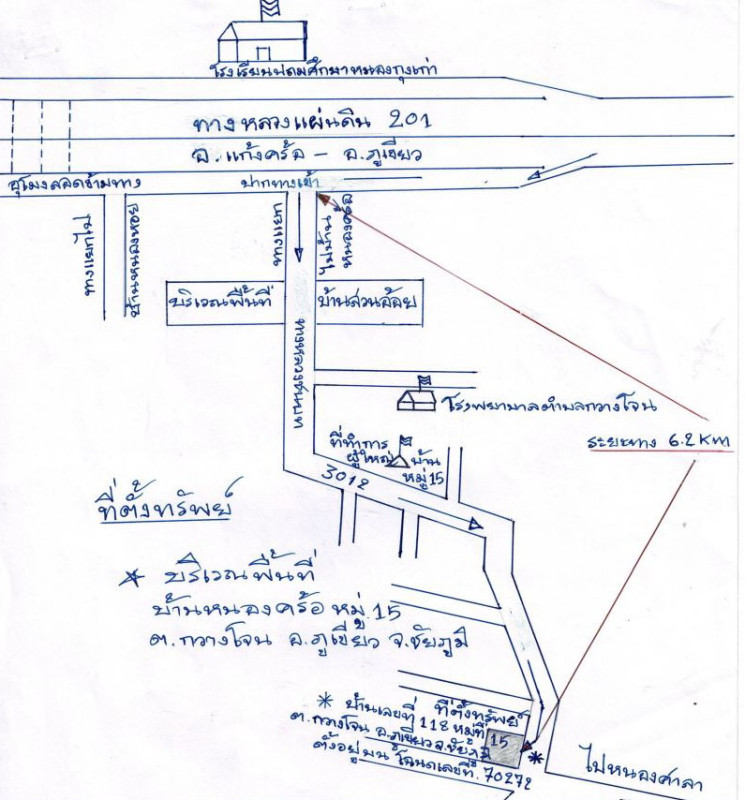 โรงเรียนประถมศึกษาหนองกุงเก่า
ทางหลวงแผ่นดิน 201
อ.แก้งคร้อ - อ.ภูเขียว
อุโมงลอดข้ามทาง
ปากทางเข้า
ทางแยกไป
บ้านหนองหอย
ทางแยก
ไปบ้าน
หนองคร้อ
บริเวณพื้นที่
บ้านสวนอ้อย
ทางหลวงชนบท
โรงพยาบาลตำบลกวางโจน
ระยะทาง 6.2 KM
ที่ทำการ
ผู้ใหญ่
บ้าน
หมู่ 15
3012
ที่ตั้งทรัพย์
* บริเวณพื้นที่
บ้านหนองคร้อ หมู่ 15
ต.กวางโจน อ.ภูเขียว จ.ชัยภูมิ
ที่ตั้งทรัพย์
* บ้านเลขที่ 118 หมู่ที่ 15
ต.กวางโจน อ.ภูเขียว จ.ชัยภูมิ
ตั้งอยู่บน โฉนดเลขที่. 70272
*
ไปหนองศาลา